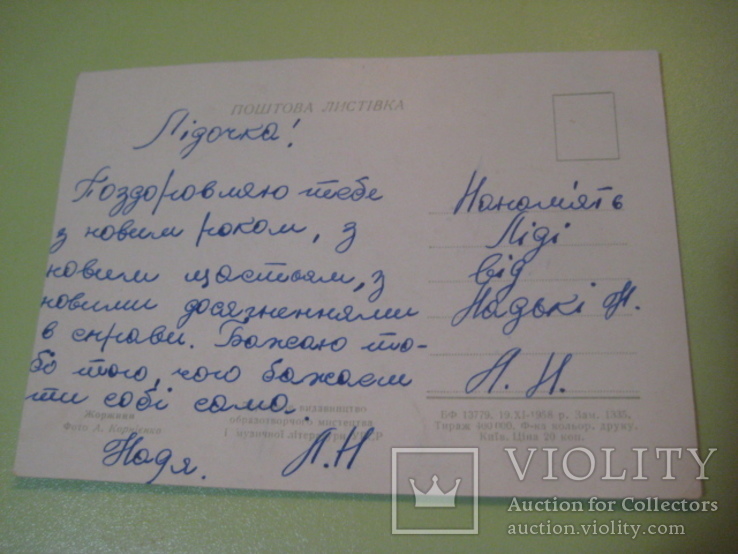 ПОШТОВА ЛИСТІВКА
Лідочка!
Поздоровляю тебе
з новим роком, з
новим щастьям, з
новими досязненнями
в справи. Бажаю то-
бі того, чого бажаєш
ти собі сама.
Надя. Л.Н
Напам'ять
Ліді
від
Надькі Н.
Л. Н.
Жоржини
Фото А. Корнієнка
видавництво
образотворчого мистецтва
і музичної літератури УРСР
БФ 13779, 19.XI-1958 р. Зам. 1935.
Тираж 400000. Ф-ка кольор. друку.
Київ. Ціна 20 коп.
VIOLITY
Auction for Collectors
auction.violity.com